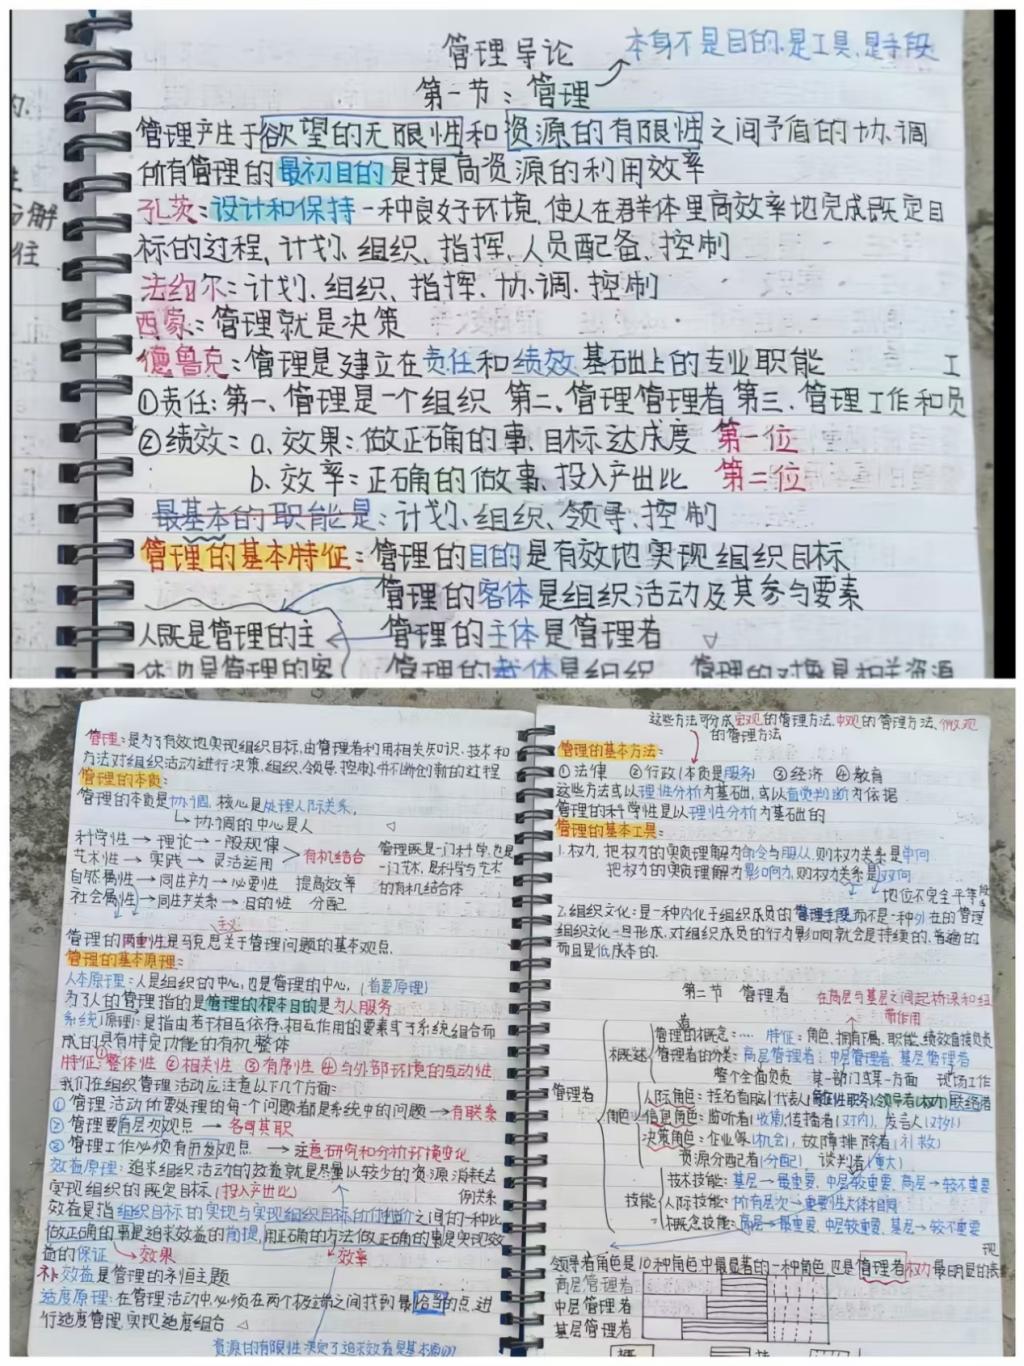 管理导论
本身不是目的、是工具、是手段
第一节：管理
管理产生于欲望的无限性和资源的有限性之间矛盾的协调
所有管理的最初目的是提高资源的利用效率
孔茨：设计和保持一种良好环境、使人在群体里高效率地完成既定目
标的过程、计划、组织、指挥、人员配备、控制
法约尔：计划、组织、指挥、协调、控制
西蒙：管理就是决策
德鲁克：管理是建立在责任和绩效基础上的专业职能
工
①责任：第一、管理是一个组织 第二、管理管理者 第三、管理工作和员
②绩效：a、效果：做正确的事、目标达成度 第一位
b、效率：正确的做事、投入产出比 第二位
最基本的职能是：计划、组织、领导、控制
管理的基本特征：管理的目的是有效地实现组织目标
管理的客体是组织活动及其参与要素
人既是管理的主 管理的主体是管理者
体也是管理的客 管理的载体是组织 管理的对象是相关资源
管理：是为了有效地实现组织目标，由管理者利用相关知识、技术和
方法对组织活动进行决策、组织、领导、控制、并不断创新的过程
管理的本质：
管理的本质是协调、核心是处理人际关系，
协调的中心是人
科学性→理论→一般规律
艺术性→实践→灵活运用 有机结合
管理既是一门科学，也是
一门艺术，是科学与艺术
的有机结合体
自然属性→同生产力→必要性 提高效率
社会属性→同生产关系→目的性 分配
主义
管理的两重性是马克思关于管理问题的基本观点
管理的基本原理：
人本原理：人是组织的中心，也是管理的中心，（首要原理）
为了人的管理指的是管理的根本目的是为人服务
系统原理：是指由若干相互依存、相互作用的要素或子系统组合而
成的具有特定功能的有机整体
特征：①整体性 ②相关性 ③有序性 ④与外部环境的互动性
我们在组织管理活动应注意以下几个方面：
① 管理活动所要处理的每一个问题都是系统中的问题→有联系
② 管理要有层次观点→各司其职
③ 管理工作必须有开发观点→注意研究和分析环境变化
效益原理：追求组织活动的效益就是尽量以较少的资源消耗去
实现组织的既定目标（投入产出比） 例关系
效益是指组织目标的实现与实现组织目标所付代价之间的一种比
做正确的事是追求效益的前提，用正确的方法做正确的事是实现效
益的保证 效果 效率
补 效益是管理的永恒主题
适度原理：在管理活动中，必须在两个极端之间找到最恰当的点，进
行适度管理，实现适度组合
资源的有限性决定了追求效益是基本原则
这些方法可分成宏观的管理方法、中观的管理方法、微观
的管理方法
管理的基本方法：
①法律 ②行政（本质是服务） ③经济 ④教育
这些方法或以理性分析为基础，或以直觉判断为依据
管理的科学性是以理性分析为基础的
管理的基本工具：
1.权力，把权力的实质理解为命令与服从，则权力关系是单向
把权力的实质理解为影响力，则权力关系是双向
地位不完全平等
2.组织文化：是一种内化于组织成员的管理手段而不是一种外在的管理
组织文化一旦形成，对组织成员的行为影响就会是持续的、普遍的
而且是低成本的.
第二节 管理者
在高层与基层之间起桥梁和纽
带作用
管理者
概述
管理的概念：…. 特征：角色、拥有下属、职能、绩效直接负责
管理者的分类：高层管理者；中层管理者、基层管理者
整个全面负责 某一部门或某一方面 现场工作
角色
人际角色：挂名首脑（代表）（象征性职务）领导者（权力）联络者
信息角色：监听者（收集）传播者（对内），发言人（对外）
决策角色：企业家（机会），故障排除者（补救）
资源分配者（分配） 谈判者（重大）
技能
技术技能：基层→最重要、中层较重要、高层→较不重要
人际技能：所有层次→重要性大体相同
概念技能：高层→最重要、中层较重要、基层→较不重要
现
领导者角色是10种角色中最显著的一种角色，也是管理者权力最明显的表
高层管理者
中层管理者
基层管理者